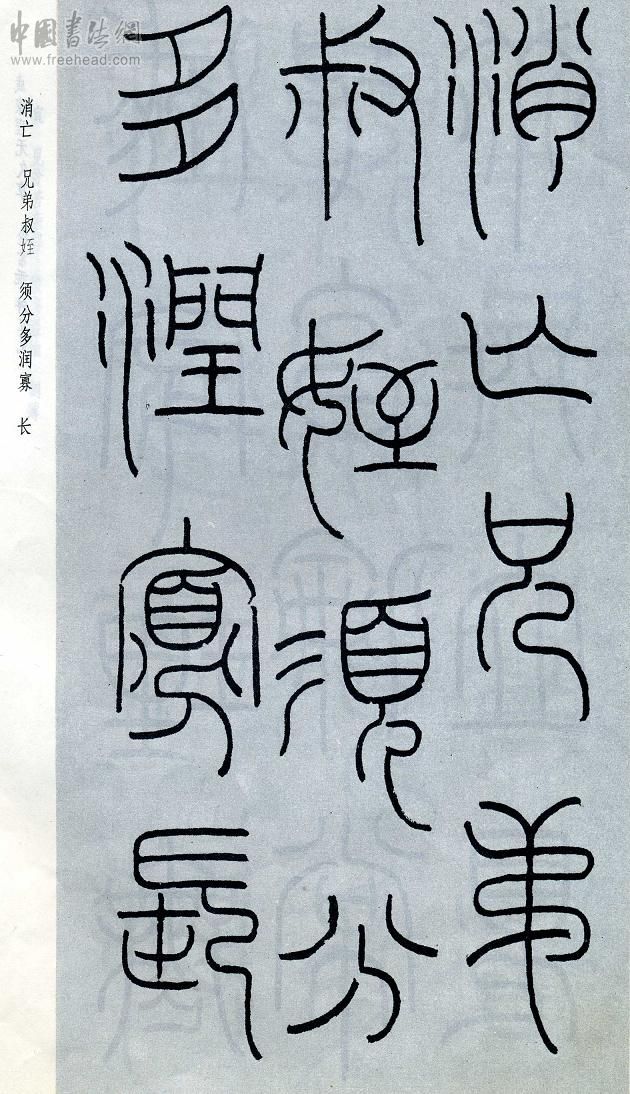 消亡兄弟
叔姪須分
多潤寡長
消亡 兄弟叔姪 须分多润寡 长
中國書法網
www.freehead.com